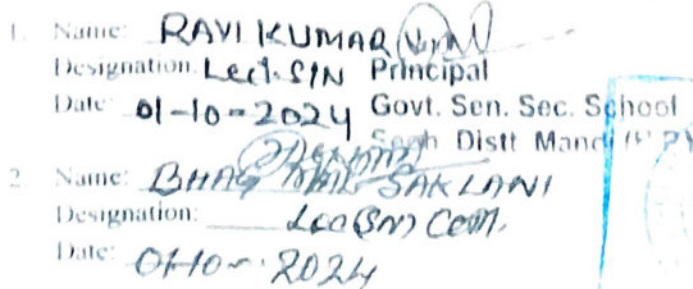 1. Name: RAVI KUMAR
Designation: Lect. SIN Principal
Date: 01-10-2024 Govt. Sen. Sec. School
Distt Mandi (H.P)
2. Name: BHAG MAL SAKLANI
Designation: Lec(SN) Com.
Date: 01-10-2024